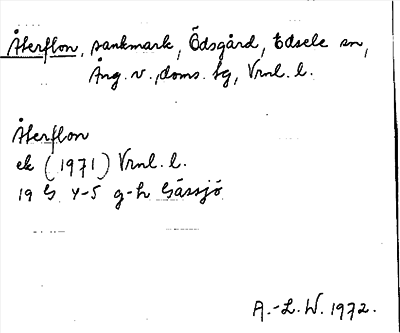 Återflon, sankmark, Ödsgård, Edsele sn,
Ång. v., doms. tg, Vrnl. l.
Återflon
ek (1971) Vrnl. l.
19 G 4-5 g-h Gåssjö
A.-L. W. 1972.